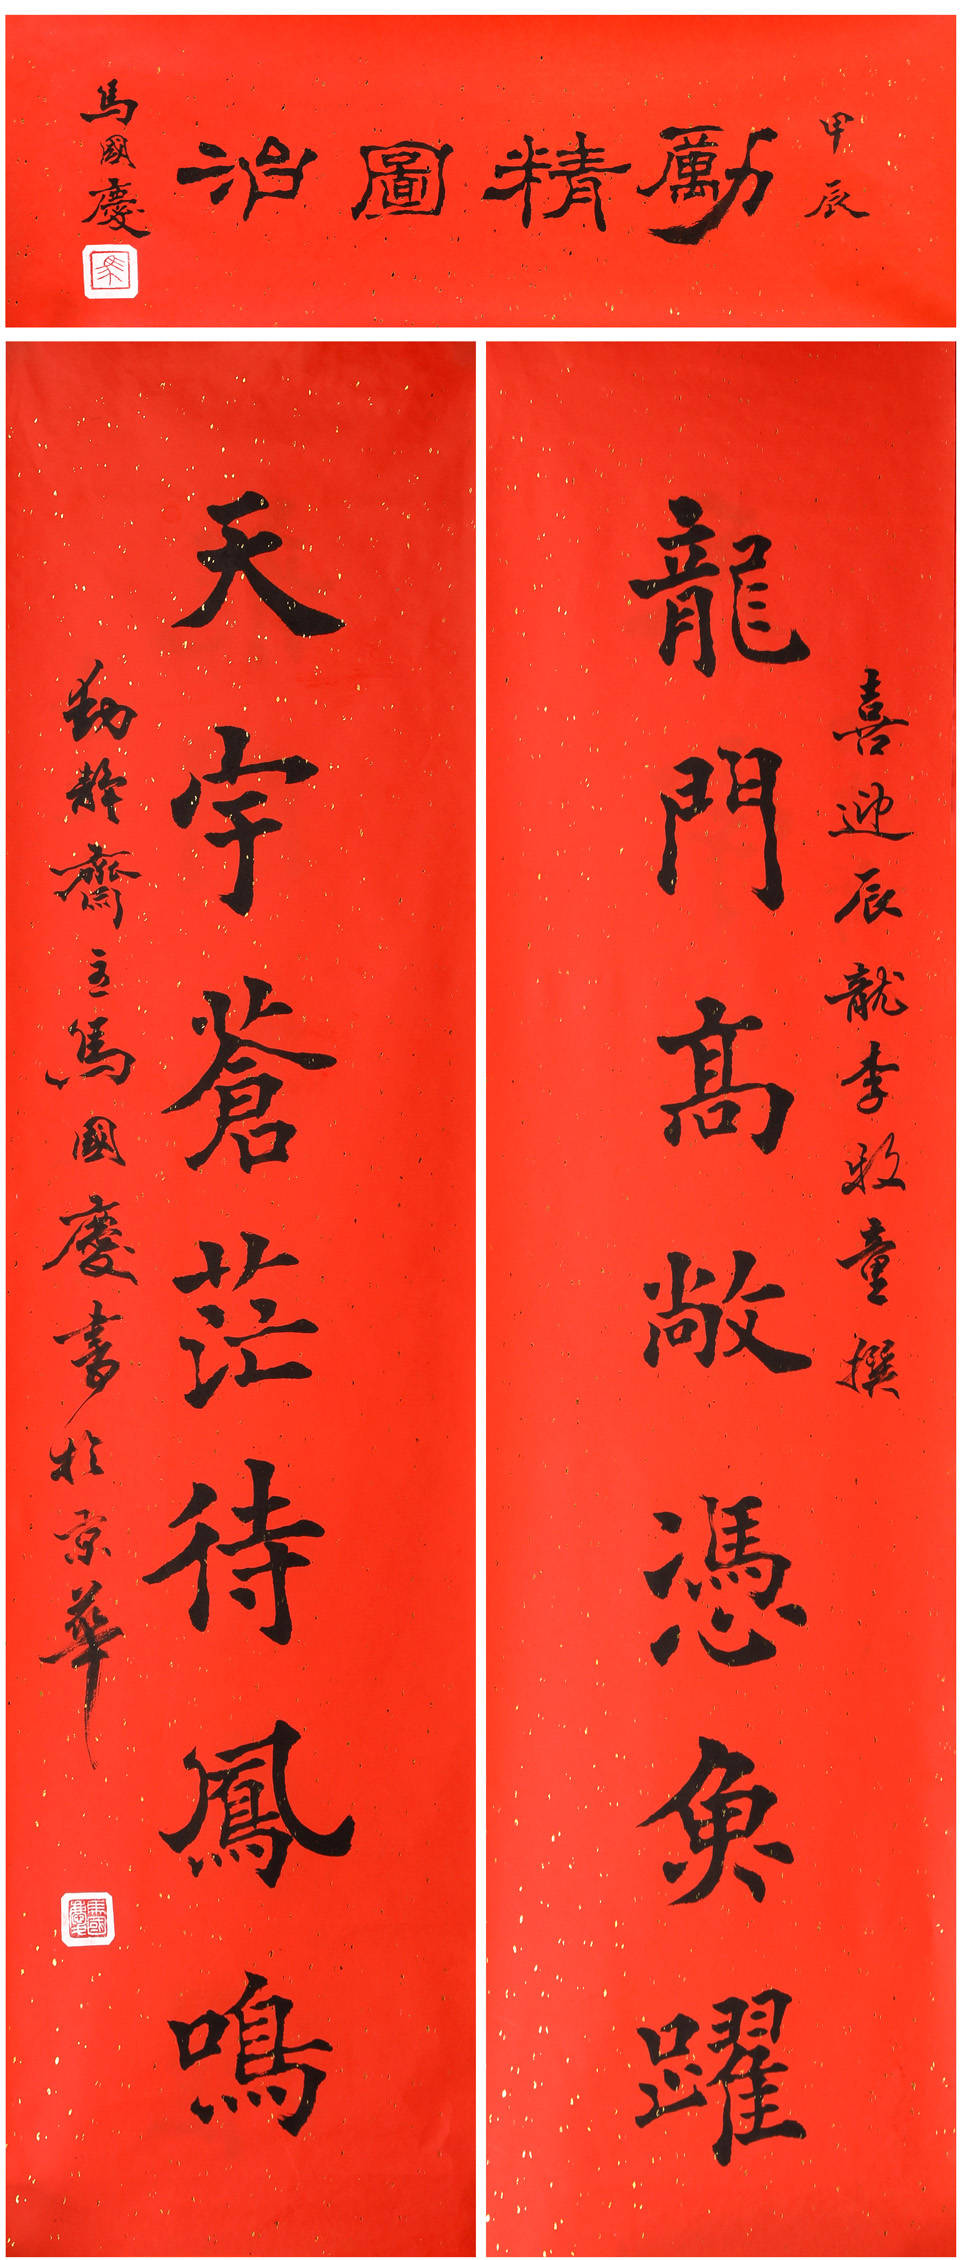 甲辰
勵精圖治
馬國慶
喜迎辰龍李牧童撰
龍門高敞憑魚躍
天宇蒼茫待鳳鳴
動靜齋主馬國慶書於京華
馬國慶